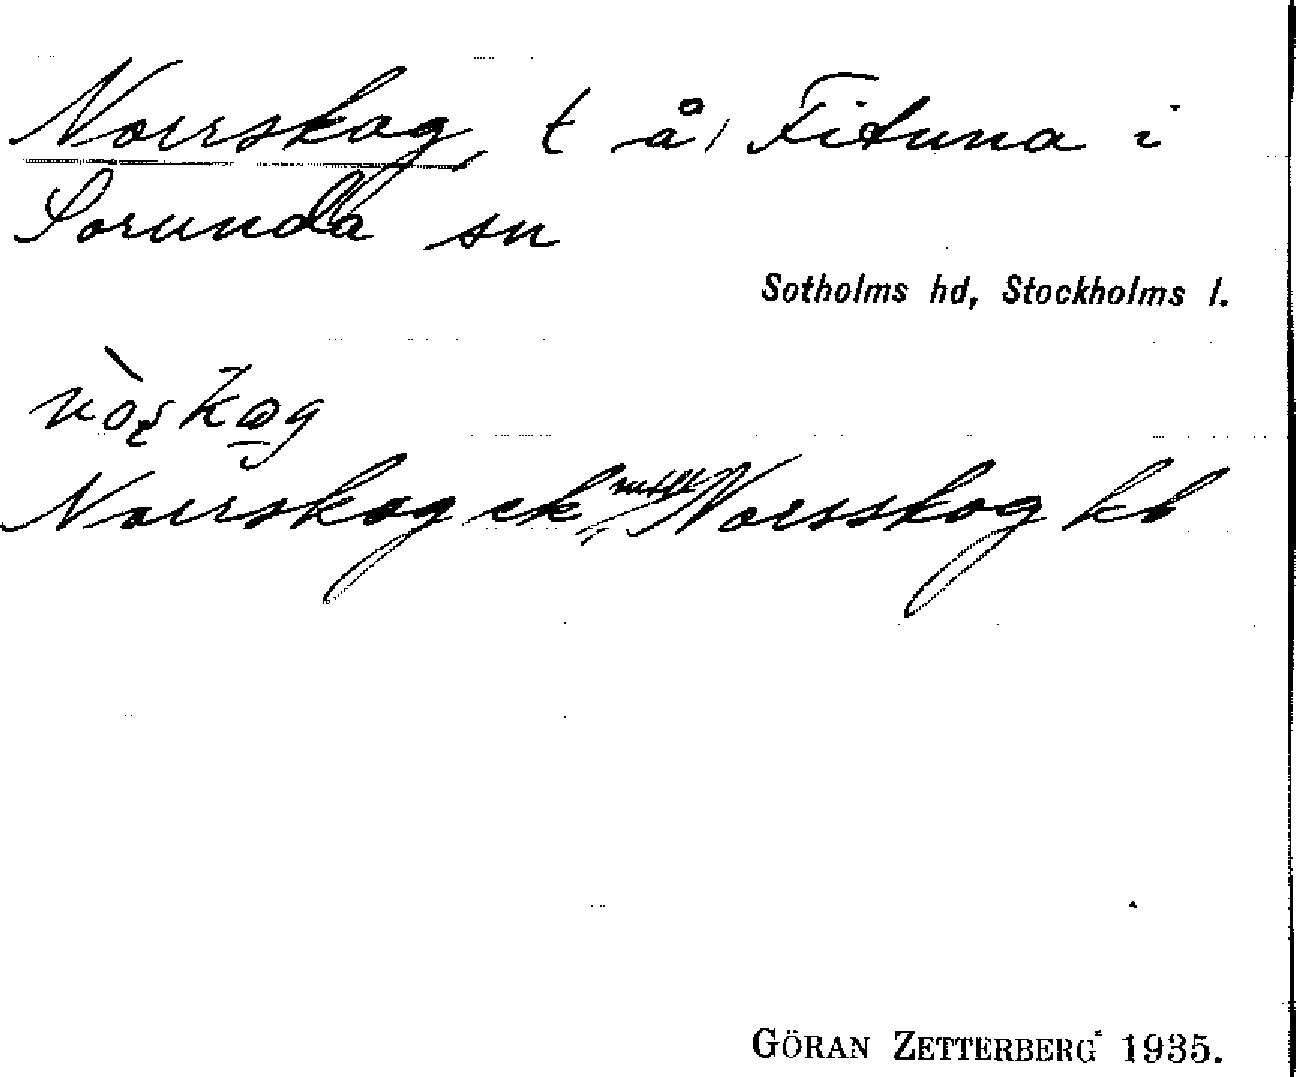 Norrskog, t å, Fituna i
Sorunda sn
Sotholms hd, Stockholms l.
Norrskog ek, Norsskog kb
GÖRAN ZETTERBERG 1935.